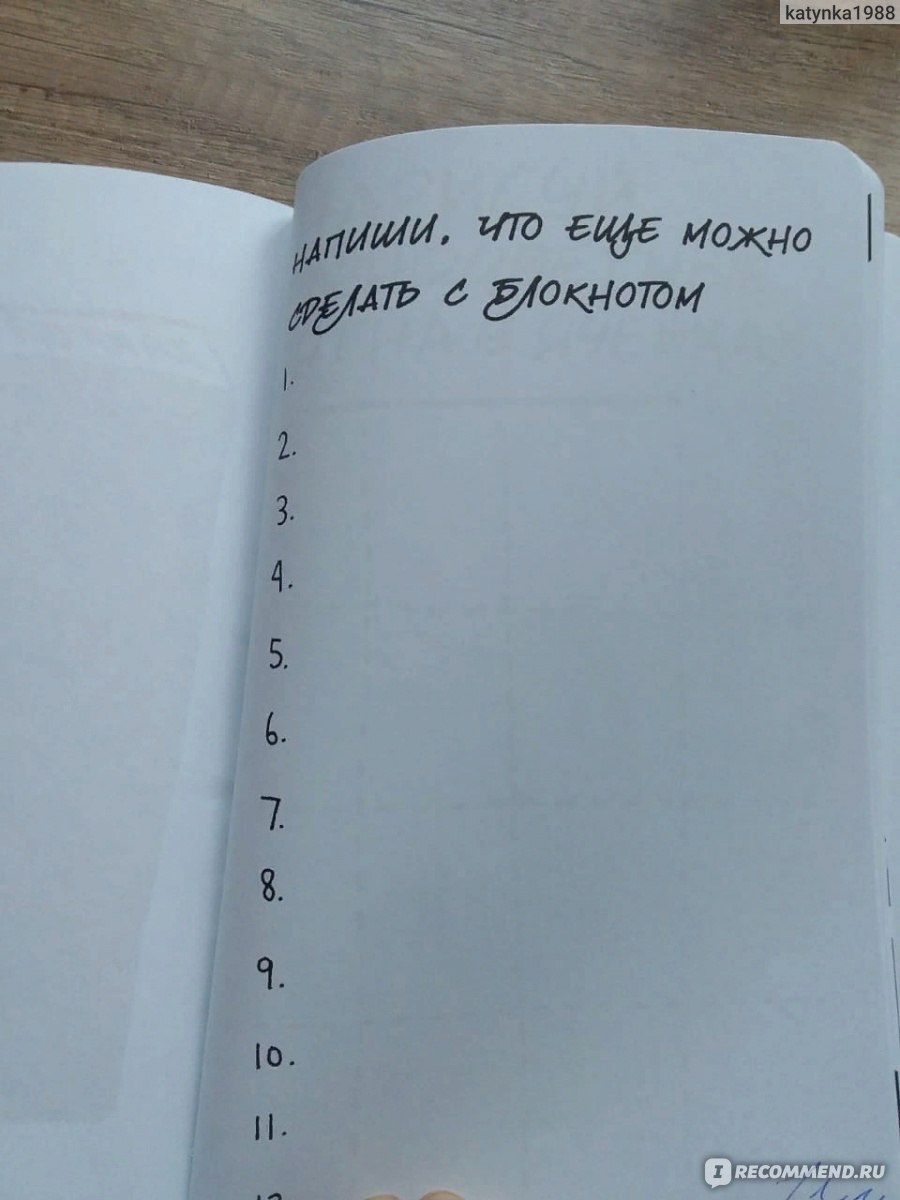 katynka1988
НАПИШИ, ЧТО ЕЩЕ МОЖНО
СДЕЛАТЬ С БЛОКНОТОМ
1.
2.
3.
4.
5.
6.
7.
8.
9.
10.
11.
12
IRECOMMEND.RU